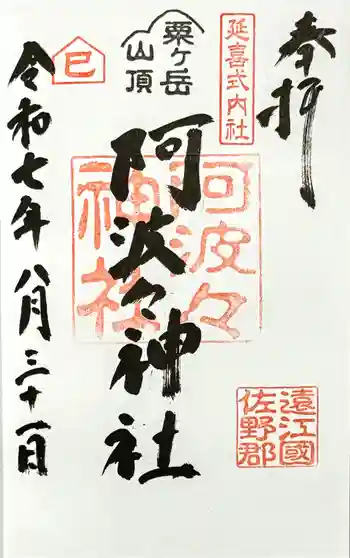 奉拝
延喜式内社
粟ヶ岳
山頂
阿波々神社
阿波々
神社
遠江國
佐野郡
巳
令和七年八月三十一日